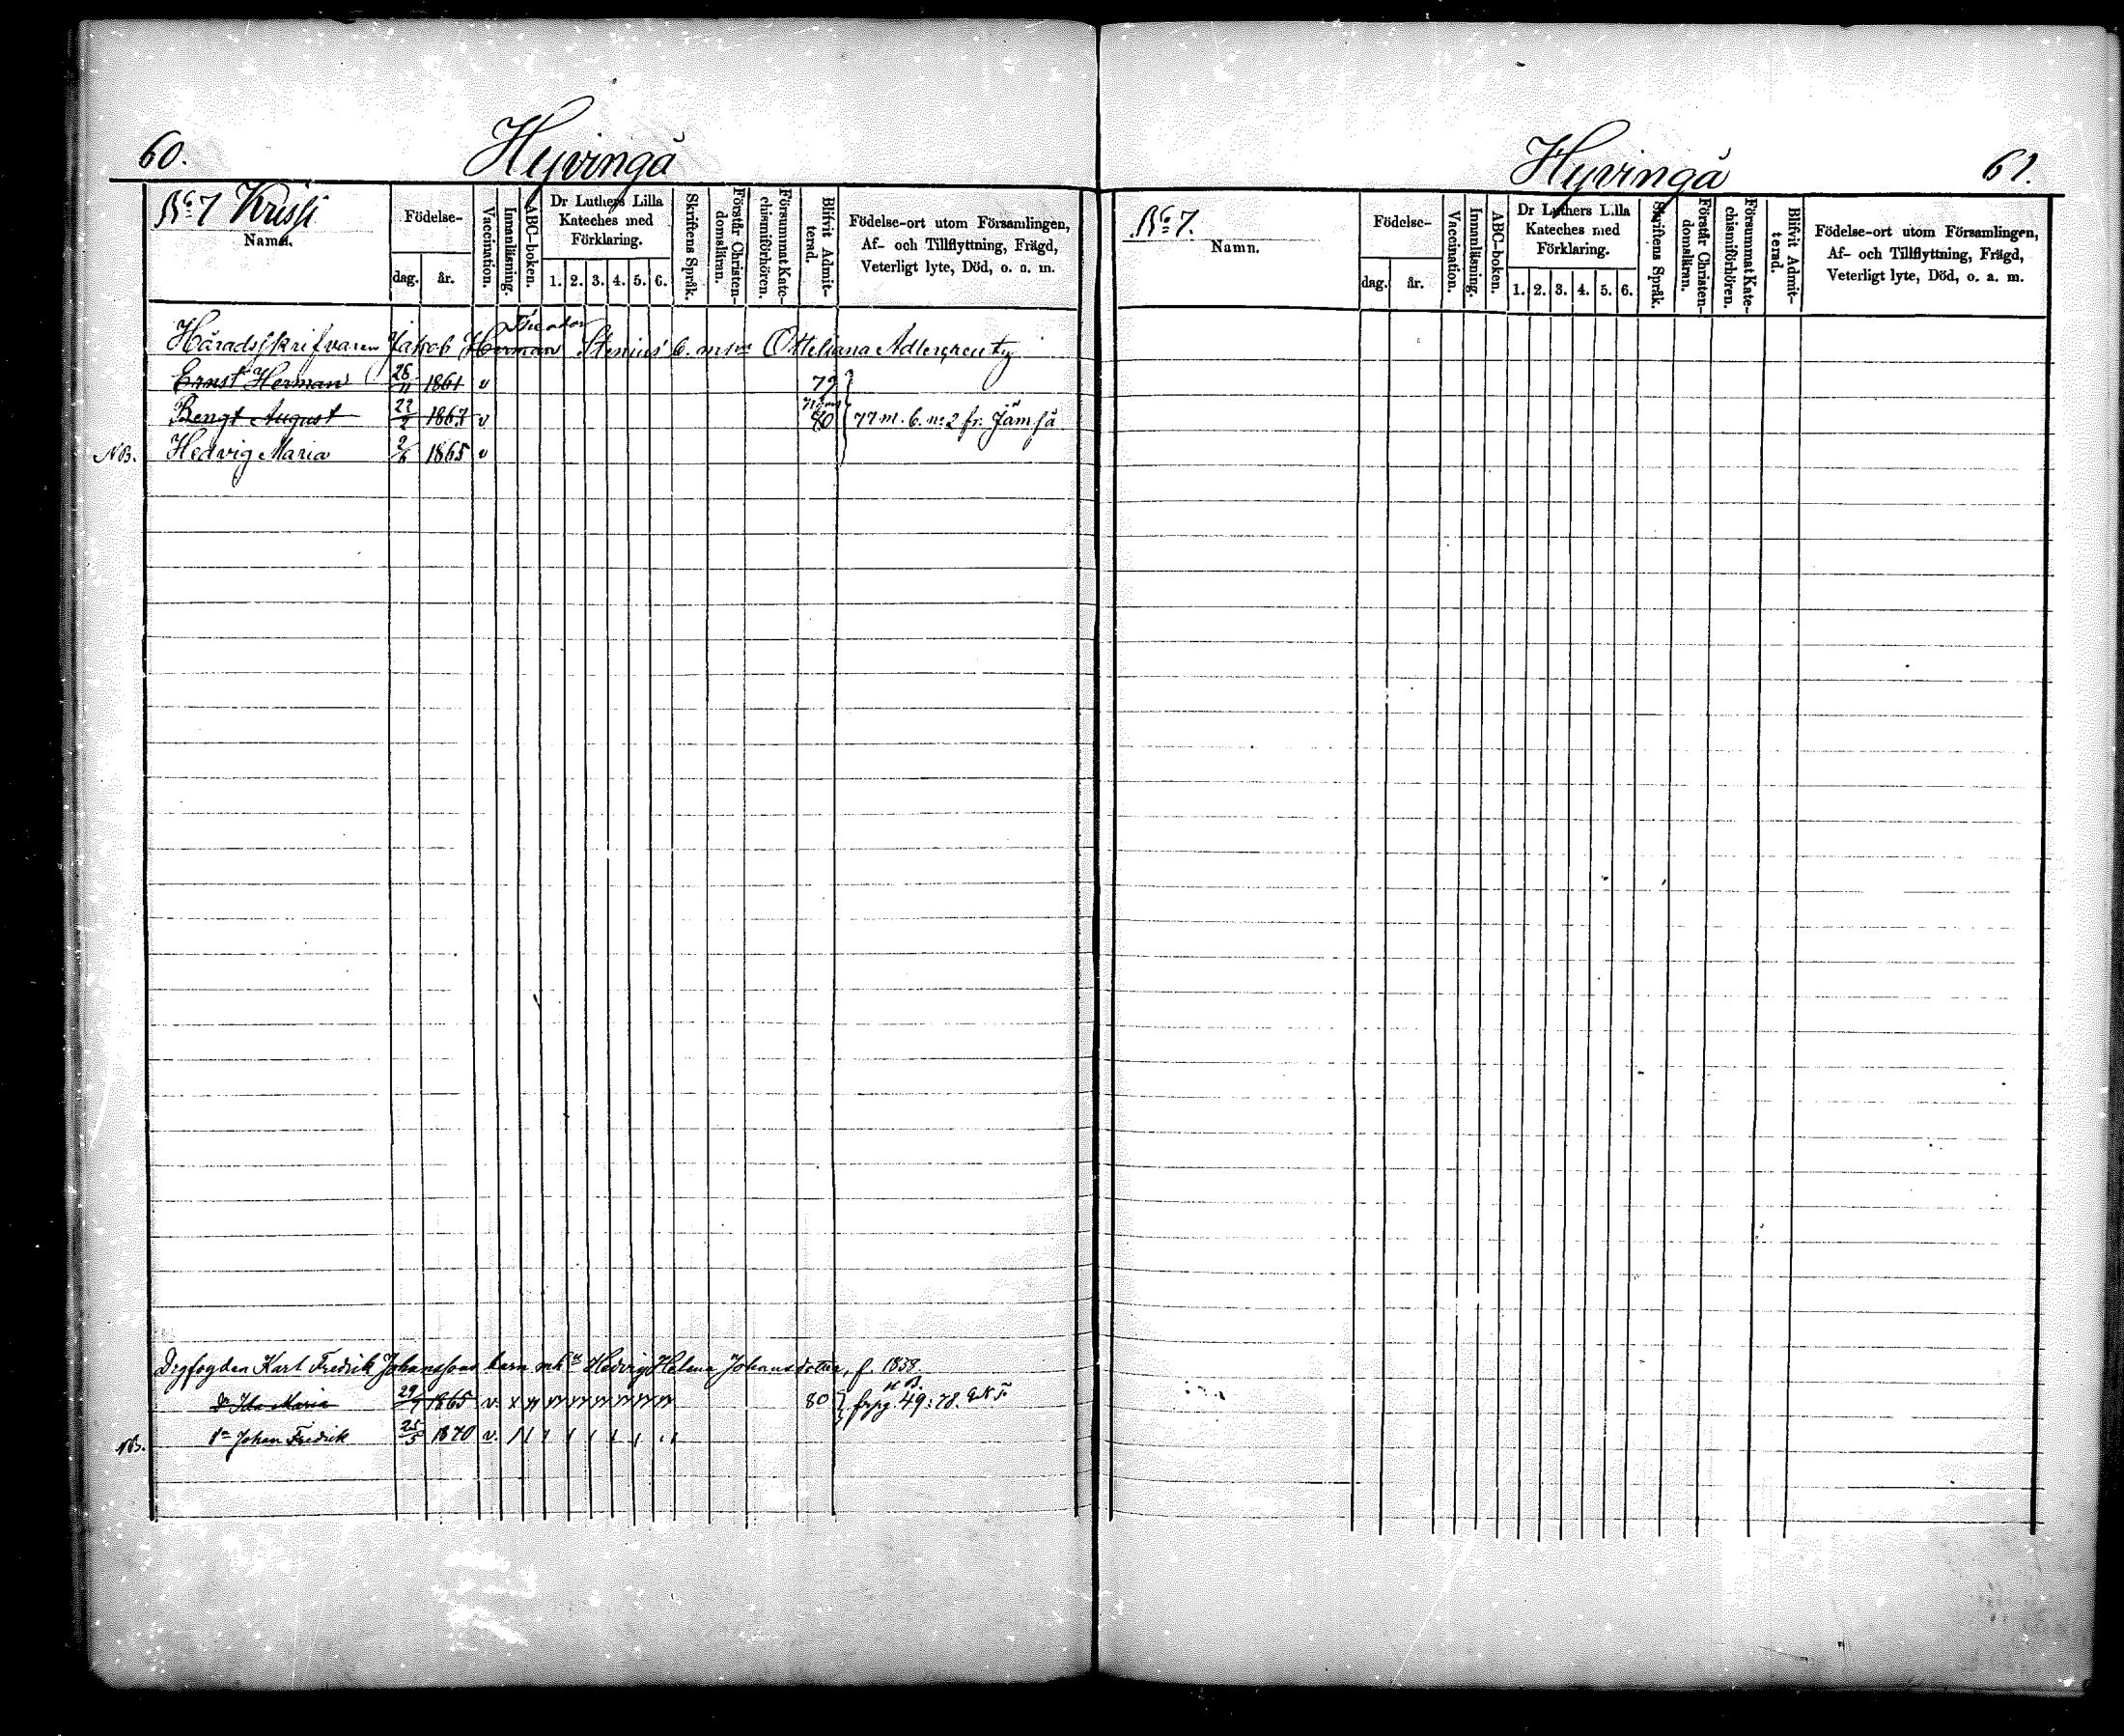 60.
Hyvingå
No 7 Krissi
Namn.
Födelse-
dag.
år.
Vaccination.
Innanläsning.
ABC-boken.
Dr Luthers Lilla
Kateches med
Förklaring.
1. 2. 3. 4. 5. 6.
Skriftens Språk.
Förstår Christen-
domsläran.
Försummat Kate-
chismiförhören.
Blifvit Admit-
terad.
Födelse-ort utom Församlingen,
Af- och Tillflyttning, Frägd,
Veterligt lyte, Död, o. a. m.
Theodor
Häradsskrifvaren Jakob Herman Stenius' b. m. Otteliana Adlercreutz
Ernst Herman 26/11 1861 v 79
Bengt August 22/2 1863 v 80 77 m. b. no 2 fr. Jämsä
NB. Hedvig Maria 2/6 1865 v
Dgfogden Karl Fredrik Johanssons barn m. h. Hedvig Helena Johansdotter, f. 1838.
Dr Ida Maria 29/9 1865 v. 80 frpg. 49: 78.
NB. Sn Johan Fredrik 25/5 1870 v.
Hyvingå
61.
No 7.
Namn.
Födelse-
dag.
år.
Vaccination.
Innanläsning.
ABC-boken.
Dr Luthers Lilla
Kateches med
Förklaring.
1. 2. 3. 4. 5. 6.
Skriftens Språk.
Förstår Christen-
domsläran.
Försummat Kate-
chismiförhören.
Blifvit Admit-
terad.
Födelse-ort utom Församlingen,
Af- och Tillflyttning, Frägd,
Veterligt lyte, Död, o. a. m.